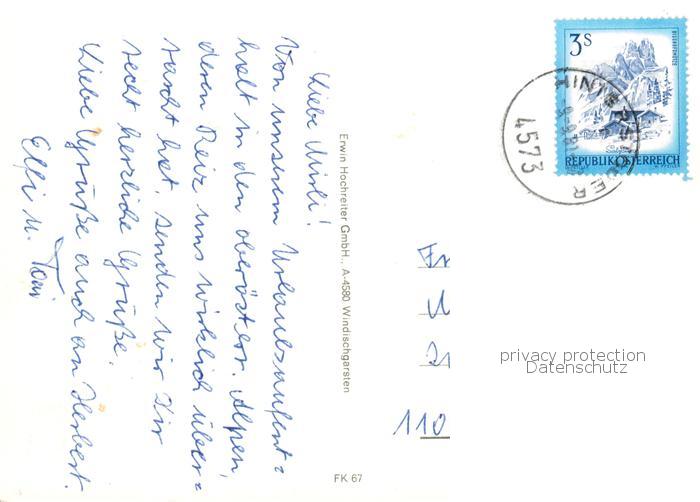 Liebe Mirli!
Von unserem Urlaubsaufent=
halt in den oberösterr. Alpen,
deren Reiz uns wirklich über=
rascht hat, senden wir Dir
recht herzliche Grüße.
Liebe Grüße auch an Herbert.
Elfi u. Toni
Erwin Hochreiter GmbH., A-4580 Windischgarsten
FK 67
3 S
REPUBLIK ÖSTERREICH
4573
Fr
21
110
privacy protection
Datenschutz